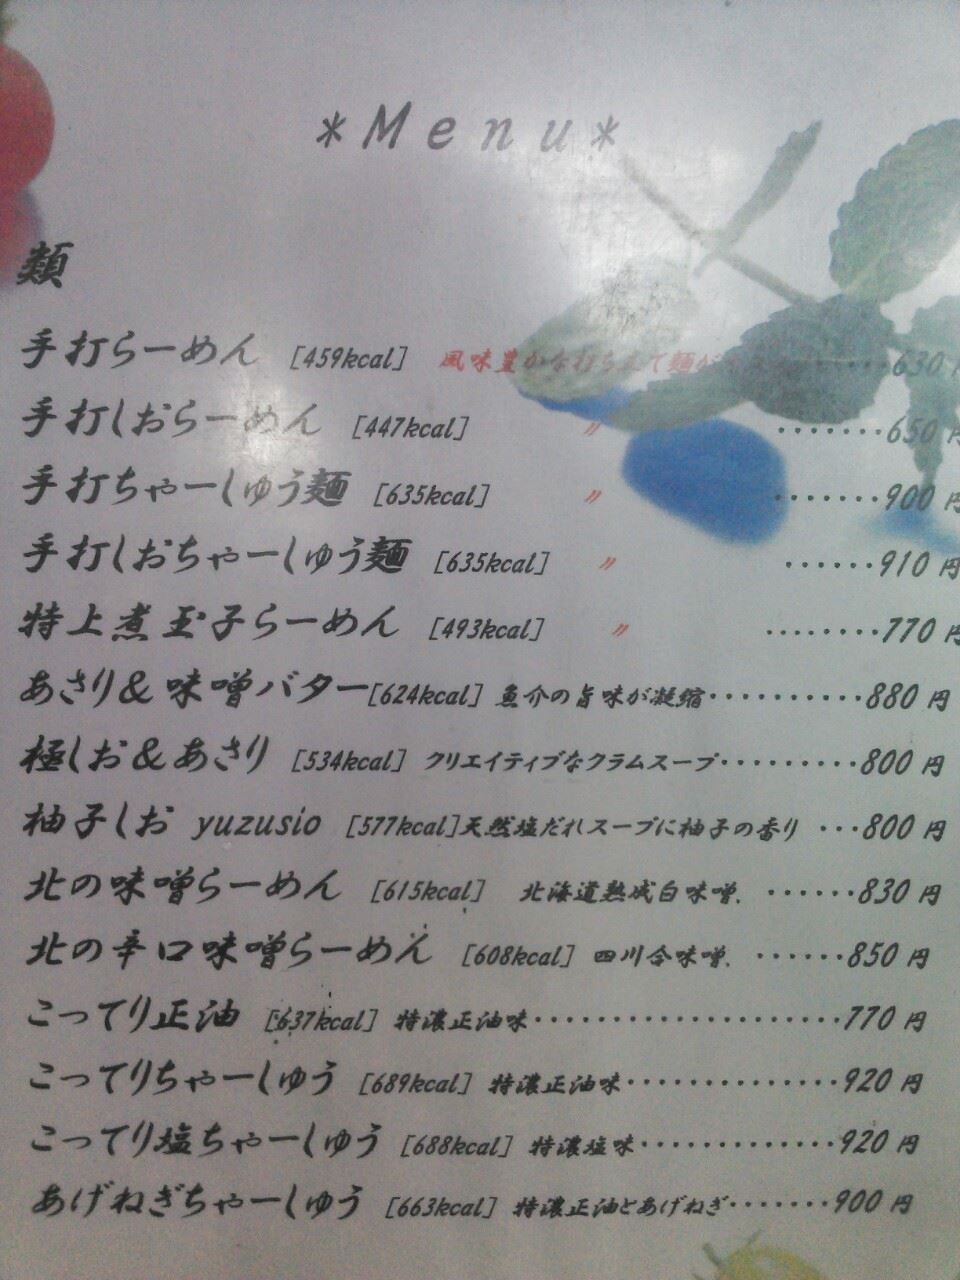 *Menu*
類
手打らーめん [459kcal] 風味豊かな打ち立て麺が ・・・・630円
手打しおらーめん [447kcal] 〃 ・・・・・・・650円
手打ちゃーしゅう麺 [635kcal] 〃 ・・・・・・・900円
手打しおちゃーしゅう麺 [635kcal] 〃 ・・・・・・910円
特上煮玉子らーめん [493kcal] 〃 ・・・・・・・・770円
あさり&味噌バター[624kcal] 魚介の旨味が凝縮・・・・・・・・・・880円
極しお&あさり [534kcal] クリエイティブなクラムスープ・・・・・・・・・800円
柚子しお yuzusio [577kcal]天然塩だれスープに柚子の香り ・・・800円
北の味噌らーめん [615kcal] 北海道熟成白味噌. ・・・・・・830円
北の辛口味噌らーめん [608kcal] 四川合味噌. ・・・・・・850円
こってり正油 [637kcal] 特濃正油味・・・・・・・・・・・・・・・・・・・・770円
こってりちゃーしゅう [689kcal] 特濃正油味・・・・・・・・・・・・・・920円
こってり塩ちゃーしゅう [688kcal] 特濃塩味・・・・・・・・・・・・・920円
あげねぎちゃーしゅう [663kcal] 特濃正油とあげねぎ・・・・・・・900円